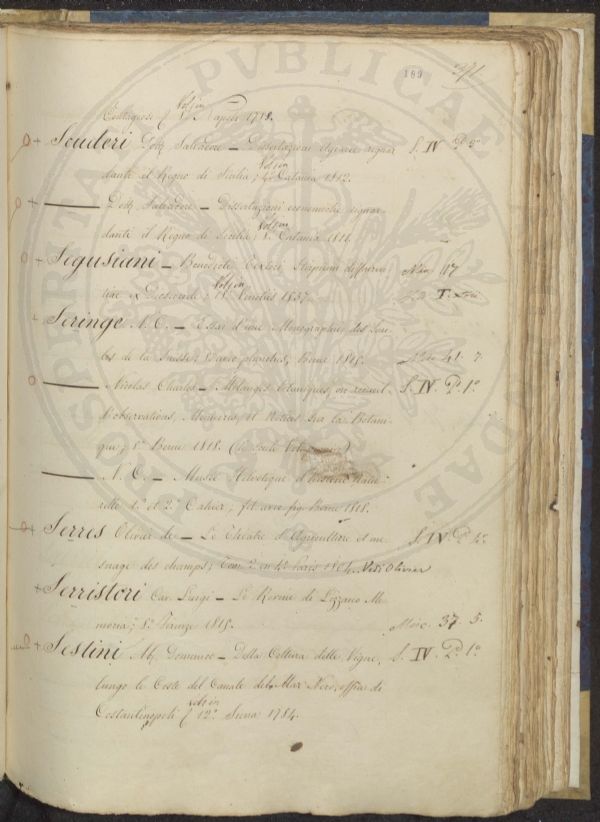 189 371
Contagiosi { Vol. in 8° Napoli 1718.
+ Scuderi Dott. Salvadore — Dissertazioni Agrarie riguar S. IV P. 2°
danti il Regno di Sicilia; Vol. in 4° Catania 1812.
+ —— Dott. Salvadore — Dissertazioni economiche riguar
danti il Regno di Sicilia; Vol. in 8° Catania 1811.
+ Segusiani — Benedicti Textori Stirpium differen Misc. 117
tiae ex Dioscoride; Vol. in 12° Venetiis 1537.
+ Seringe N. C. — Essai d'une Monographie des Sau
les de la Suisse; 8° avec planches, Berne 1815. Misc. 41. 7.
—— Nicolas Charles — Mélanges botaniques, ou recueil S. IV. P. 1°
d'observations, Mémoires, et Notices sur la Botani
que; 8° Berne 1818. (
—— N. C. — Musée Helvetique d'histoire Natu
relle 1° et 2° Cahier; fol. avec fig. Berne 1818.
+ Serres Olivier de — Le Théatre d'Agriculture et me S. IV. P. 4°
snage des champs; Tom. 2 en 4° Paris 1804. Vedi Olivier
+ Serristori Cav. Luigi — Le Rovine di Lizzano Me
moria; 8° Firenze 1815. Misc. 37. 5.
+ Sestini Ab. Domenico — Della Coltura delle Vigne, S. IV. P. 1°
lungo le Coste del Canale del Mar Nero,
Costantinopoli { vol. in 12° Siena 1784.
PUBLICAE